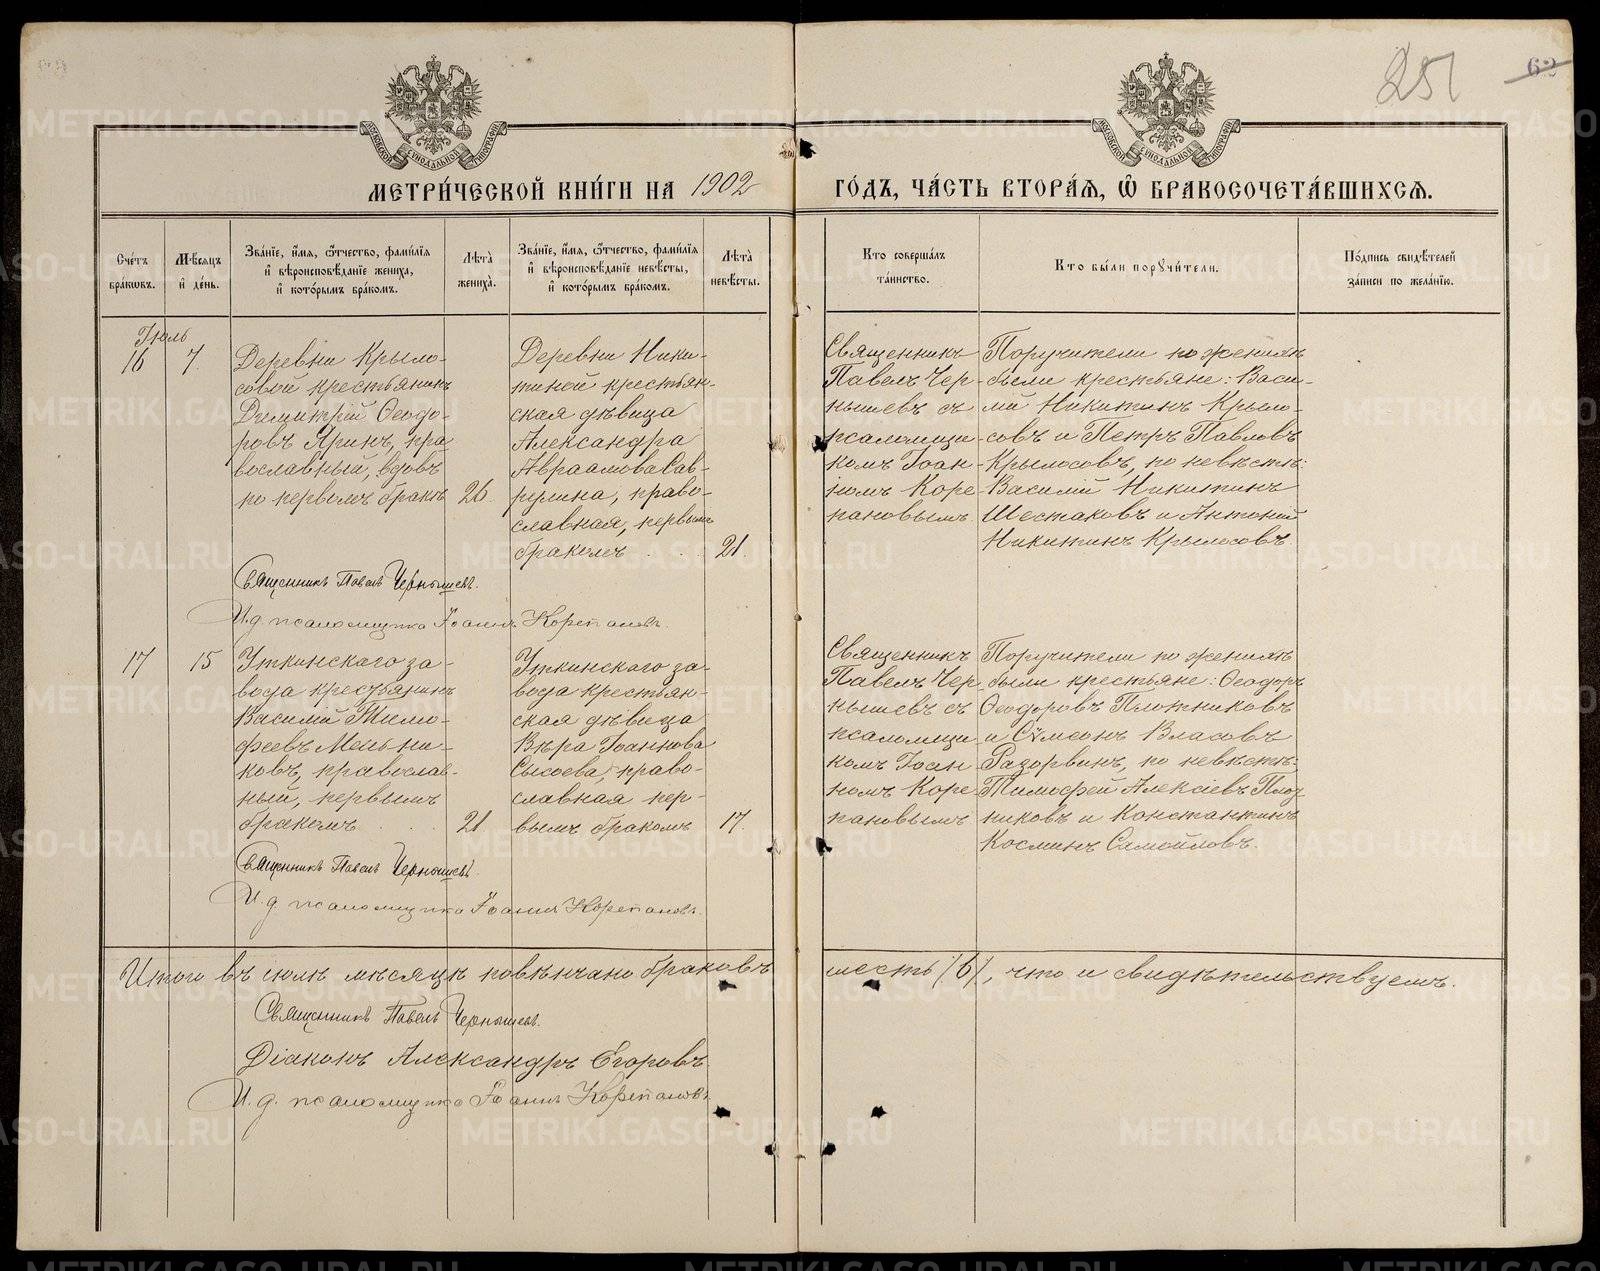 251
62
МЕТРИ́ЧЕСКОЙ КНИ́ГИ НА 1902
ГО́ДЪ, ЧА́СТЬ ВТОРА́Ѧ, Ѽ БРАКОСОЧЕТА́ВШИХСѦ.
Сче́тъ бра́кѡвъ.
Мѣ́сѧцъ и҆ де́нь.
Зва́нїе, и҆́мѧ, ѻ҆́тчество, фами́лїѧ
и҆ вѣроисповѣ́данїе жениха̀,
и҆ кото́рымъ бра́комъ.
Лѣ́та жениха̀.
Зва́нїе, и҆́мѧ, ѻ҆́тчество, фами́лїѧ
и҆ вѣроисповѣ́данїе невѣ́сты,
и҆ кото́рымъ бра́комъ.
Лѣ́та невѣ́сты.
Кто̀ соверша́лъ
та́инство.
Кто̀ бы́ли порꙋчи́тели.
По́дпись свидѣ́телей
за́писи по жела́нїю.
Іюль
16
7
Деревни Крыло-
совой крестьянинъ
Димитрій Ѳеодо-
ровъ Яринъ, пра
вославный, вдовъ
по первомъ бракѣ
26.
Деревни Ники-
тиной крестьян-
ская дѣвица
Александра
Авраамова Сав-
рулина, право-
славная, первымъ
бракомъ . . .
21.
Священникъ
Павелъ Чер-
нышевъ съ
псаломщи-
комъ Іоан-
номъ Коре-
пановымъ
Поручители по женихѣ
были крестьяне: Васи-
лій Никитинъ Крыло-
совъ и Петръ Павловъ
Крылосовъ, по невѣстѣ:
Василій Никитинъ
Шестаковъ и Антоній
Никитинъ Крылосовъ
Священникъ Павелъ Чернышевъ.
И.д. псаломщика Іоаннъ Корепановъ.
17
15
Уткинскаго за-
вода крестьянинъ
Василій Тимо-
феевъ Мельни-
ковъ, православ-
ный, первымъ
бракомъ . . .
21
Уткинскаго за-
вода крестьян-
ская дѣвица
Вѣра Іоаннова
Сысоева, право-
славная пер-
вымъ бракомъ
17.
Священникъ
Павелъ Чер
нышевъ съ
псаломщи-
комъ Іоан
номъ Коре
пановымъ
Поручители по женихѣ
были крестьяне: Ѳеодоръ
Ѳеодоровъ Плотниковъ
и Сѵмеонъ Власовъ
Разорвинъ, по невѣстѣ:
Тимоѳей Алексіевъ Плот
никовъ и Константинъ
Косминъ Самойловъ.
Священникъ Павелъ Чернышевъ.
И.д. псаломщика Іоаннъ Корепановъ.
Итого въ іюлѣ мѣсяцѣ повѣнчано браковъ шесть /6/, что и свидѣтельствуемъ.
Священникъ Павелъ Чернышевъ.
Діаконъ Александръ Егоровъ.
И.д. псаломщика Іоаннъ Корепановъ.
METRIKI.GASO-URAL.RU